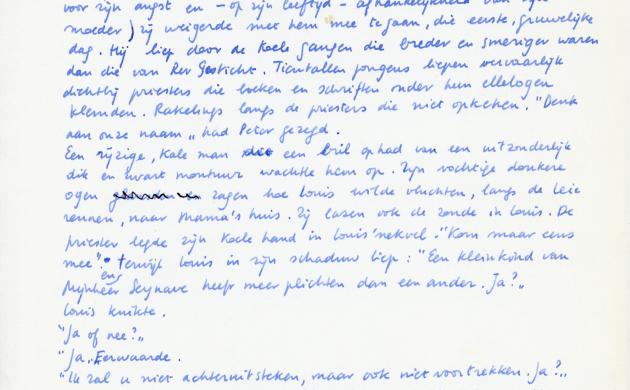 voor zijn angst en – op zijn leeftijd – afhankelijkheid van zijn
moeder) zij weigerde met hem mee te gaan, die eerste, gruwelijke
dag. Hij liep door de koele gangen die breder en smeriger waren
dan die van Het Gesticht. Tientallen jongens liepen vervaarlijk
dichtbij priesters die boeken en schriften onder hun ellebogen
klemden. Rakelings langs de priesters die niet opkeken. "Denk
aan onze naam" had Peter gezegd.
Een rijzige, kale man die een bril op had van een uitzonderlijk
dik en zwart montuur wachtte hem op. Zijn vochtige donkere
ogen zagen hoe Louis wilde vluchten, langs de Leie
rennen, naar Mama's huis. Zij lazen ook de zonde in Louis. De
priester legde zijn koele hand in Louis' nekvel. "Kom maar eens
mee". en terwijl Louis in zijn schaduw liep: "Een kleinkind van
Mijnheer Seynave heeft meer plichten dan een ander. Ja?"
Louis knikte.
"Ja of nee?"
"Ja, Eerwaarde.
"Ik zal u niet achteruitsteken, maar ook niet voortrekken. Ja?"